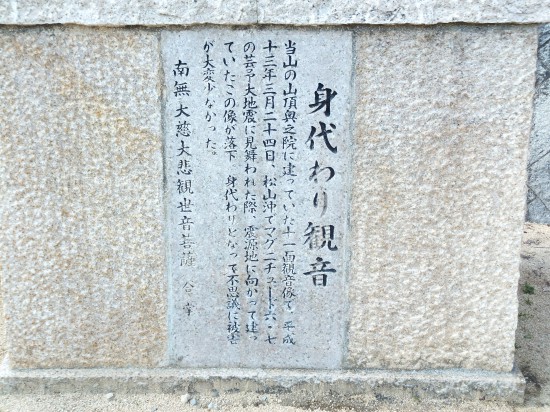 身代わり観音
当山の山頂奥之院に建っていた十一面観音像で、平成
十三年三月二十四日、松山沖でマグニチュード六・七
の芸予大地震に見舞われた際、震源地に向かって建っ
ていたこの像が落下 身代わりとなって不思議に被害
が大変少なかった。
南無大慈大悲観世音菩薩 合掌